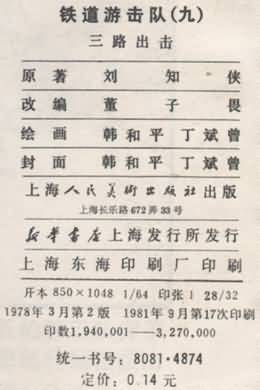 铁道游击队(九)
三路出击
原著 刘知侠
改编 董子畏
绘画 韩和平 丁斌曾
封面 韩和平 丁斌曾
上海人民美术出版社出版
上海长乐路672弄33号
新华书店上海发行所发行
上海东海印刷厂印刷
开本 850×1048 1/64 印张 1 28/32
1978年3月第2版 1981年9月第17次印刷
印数1,940,001——3,270,000
统一书号：8081·4874
定价：0.14元